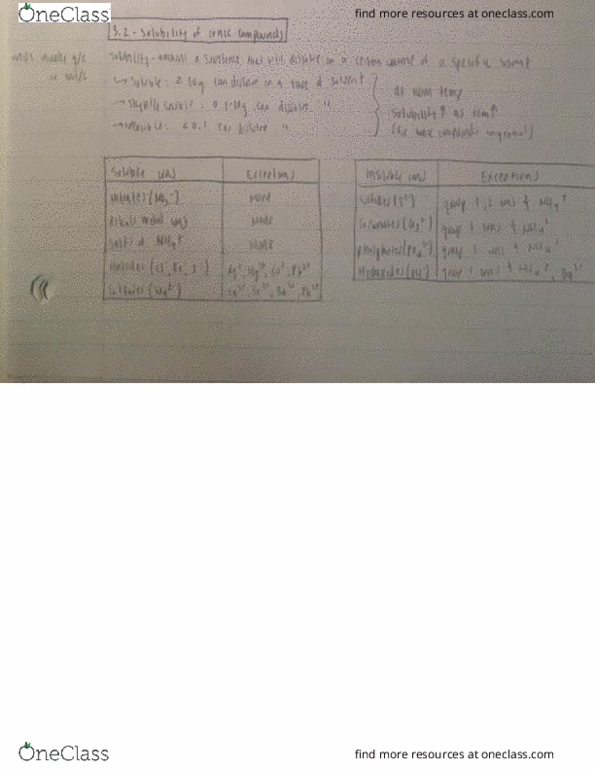 OneClass
find more resources at oneclass.com
3.2 - Solubility of Ionic Compounds
units: usually g/L
or mol/L
solubility - amount a substance that will dissolve in a certain amount of a specific solvent
soluble: can dissolve in a solvent
slightly soluble: 0.1- can dissolve "
insoluble: < 0.1 can dissolve "
at room temp
solubility ↑ as temp ↑
(for ionic compounds in general)
Soluble ions Exceptions
nitrates (NO3-) NONE
alkali metal ions NONE
salts of NH4+ NONE
Halides (Cl-, Br-, I-)
sulfates (SO4 2-)
Insoluble ions Exceptions
sulfides (S2-) group 1, 2 ions & NH4+
Carbonates (CO3 2-) group 1 ions & NH4+
phosphates (PO4 3-) group 1 ions & NH4+
Hydroxides (OH-) group 1 ions & NH4+, Ba2+
OneClass
find more resources at oneclass.com